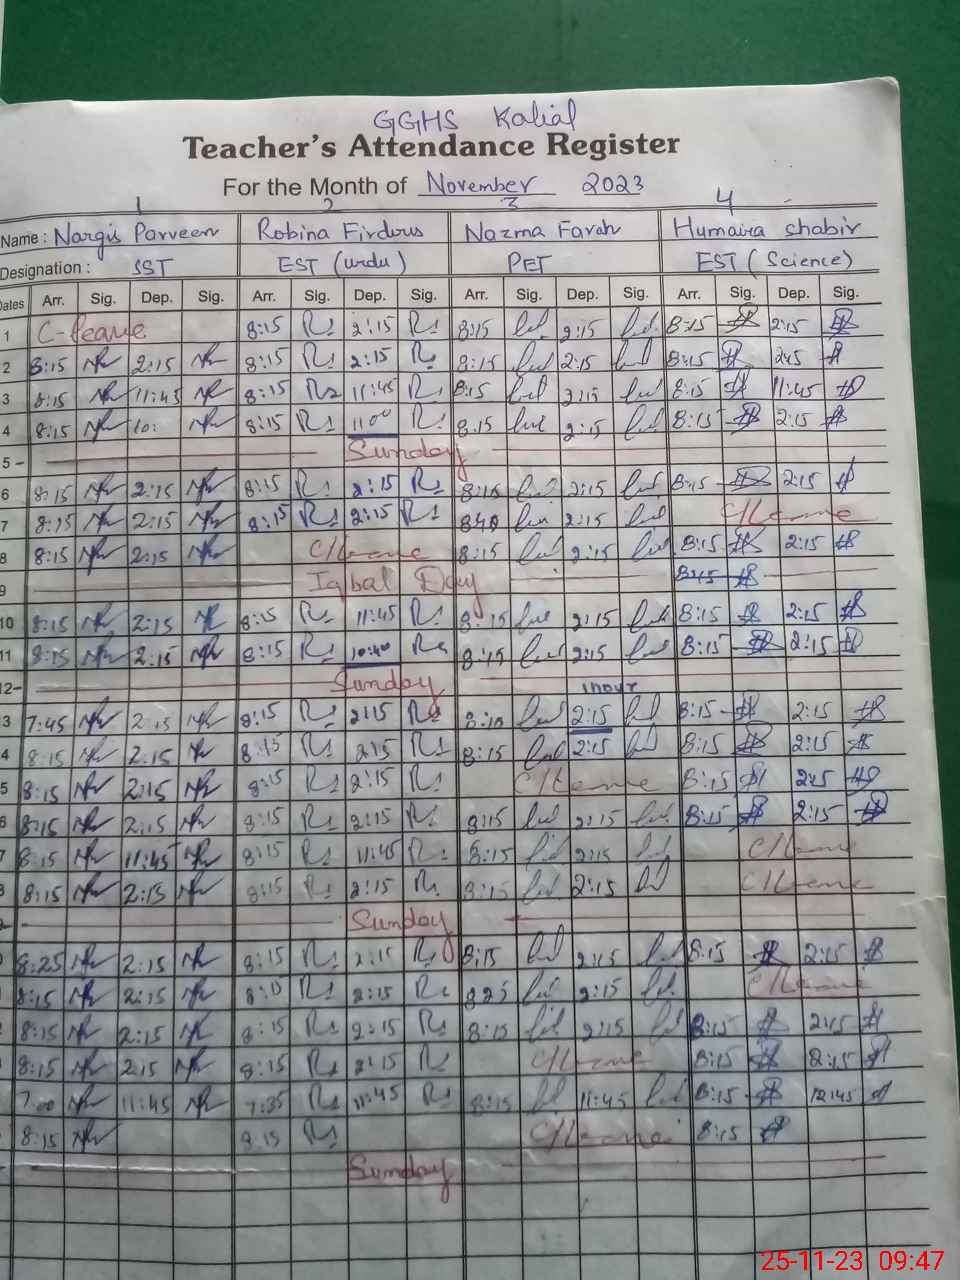 GGHS Kalial
Teacher's Attendance Register
For the Month of November 2023
1 2 3 4
Name : Nargis Parveen Robina Firdous Nazma Farah Humaira shabir
Designation : SST EST (urdu) PET EST (Science)
Dates Arr. Sig. Dep. Sig. Arr. Sig. Dep. Sig. Arr. Sig. Dep. Sig. Arr. Sig. Dep. Sig.
1 C-leave 8:15 2:15 8:15 2:15 8:15 2:15
2 8:15 2:15 8:15 2:15 8:15 2:15 8:15 2:15
3 8:15 11:45 8:15 11:45 8:15 2:15 8:15 11:45
4 8:15 10: 8:15 11:00 8:15 2:15 8:15 2:15
5 - Sunday
6 8:15 2:15 8:15 2:15 8:15 2:15 8:15 2:15
7 8:15 2:15 8:15 2:15 840 2:15 C/Leave
8 8:15 2:15 C/Leave 8:15 2:15 8:15 2:15
9 Iqbal Day 8:15
10 8:15 2:15 8:15 11:45 8:15 2:15 8:15 2:15
11 8:15 2:15 8:15 10:40 8:15 2:15 8:15 2:15
12- Sunday 1 hour
3 7:45 2:15 8:15 2:15 8:10 2:15 8:15 2:15
4 8:15 2:15 8:15 2:15 8:15 2:15 8:15 2:15
5 8:15 2:15 8:15 2:15 C/Leave 8:15 2:15
6 8:15 2:15 8:15 2:15 8:15 2:15 8:15 2:15
7 8:15 11:45 8:15 11:45 8:15 2:15 C/Leave
8 8:15 2:15 8:15 2:15 8:15 2:15 C/Leave
Sunday
8:25 2:15 8:15 2:15 8:15 2:15 8:15 2:15
8:15 2:15 8:15 2:15 825 2:15 C/Leave
8:15 2:15 8:15 2:15 8:15 2:15 8:15 2:15
8:15 2:15 8:15 2:15 C/Leave 8:15 2:15
7:00 11:45 7:35 11:45 8:15 11:45 8:15 12:45
8:15 8:15 C/Leave 8:15
Sunday
25-11-23 09:47